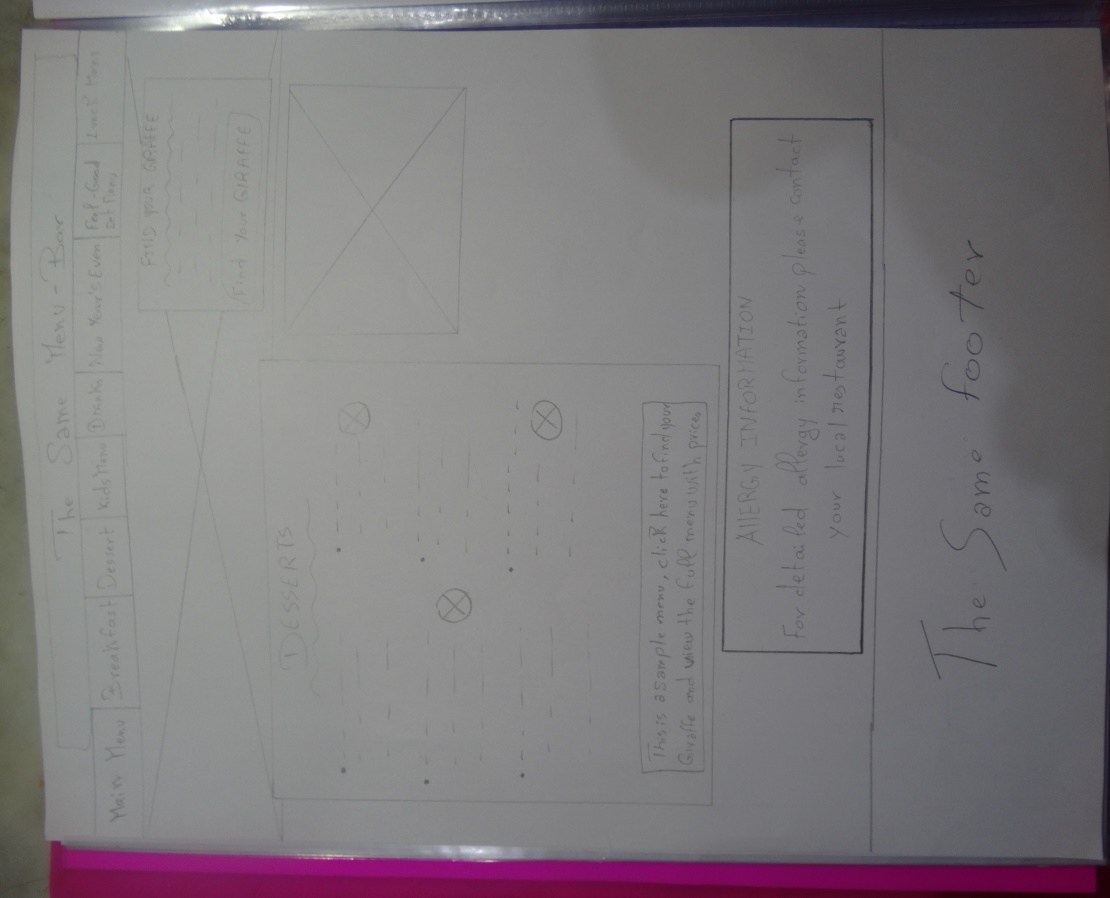 The Same Menu-Bar
Main Menu
Breakfast
Dessert
Kids Menu
Drinks
New Year's Even
Feel-Good
Set Menu
FIND your GIRAFFE
Find Your GIRAFFE
DESSERTS
This is a sample menu, click here to find your
Giraffe and view the full menu with prices
AllERGY INFORMATION
For detailed allergy information please contact
your local restaurant
The Same footer